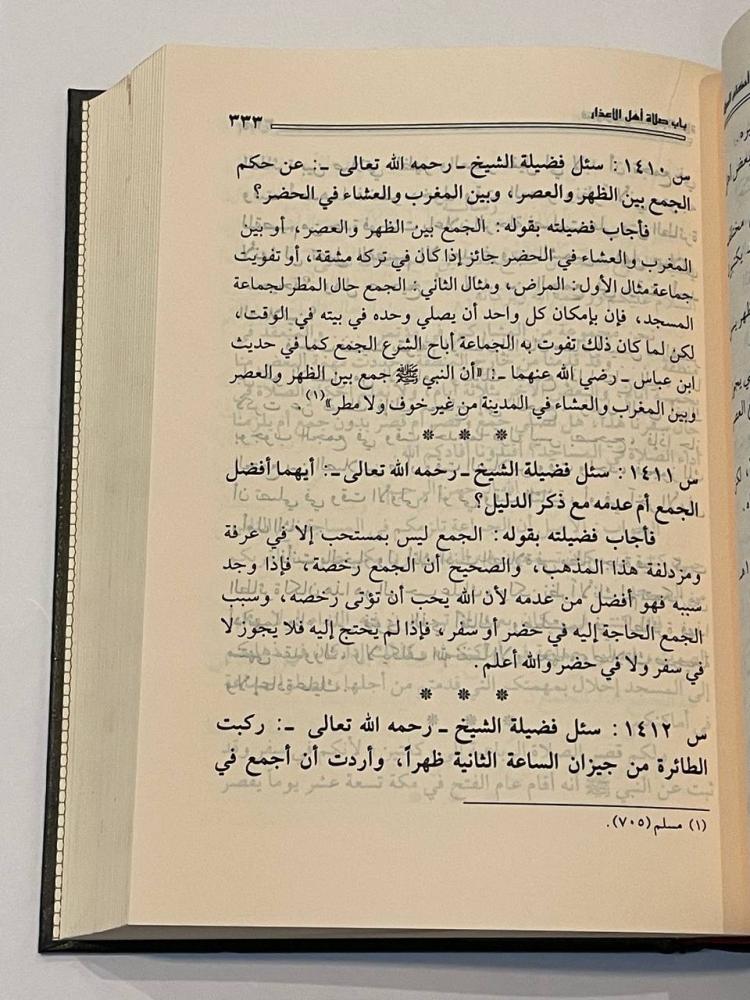 باب صلاة أهل الأعذار ٣٣٣
س ١٤١٠: سئل فضيلة الشيخ ـ رحمه الله تعالى ـ: عن حكم
الجمع بين الظهر والعصر، وبين المغرب والعشاء في الحضر؟
فأجاب فضيلته بقوله: الجمع بين الظهر والعصر، أو بين
المغرب والعشاء في الحضر جائز إذا كان في تركه مشقة، أو تفويت
جماعة مثال الأول: المرض، ومثال الثاني: الجمع حال المطر لجماعة
المسجد، فإن بإمكان كل واحد أن يصلي وحده في بيته في الوقت،
لكن لما كان ذلك تفوت به الجماعة أباح الشرع الجمع كما في حديث
ابن عباس ـ رضي الله عنهما ـ: «أن النبي ﷺ جمع بين الظهر والعصر
وبين المغرب والعشاء في المدينة من غير خوف ولا مطر»(١).
* * *
س ١٤١١: سئل فضيلة الشيخ ـ رحمه الله تعالى ـ: أيهما أفضل
الجمع أم عدمه مع ذكر الدليل؟
فأجاب فضيلته بقوله: الجمع ليس بمستحب إلا في عرفة
ومزدلفة هذا المذهب، والصحيح أن الجمع رخصة، فإذا وجد
سببه فهو أفضل من عدمه لأن الله يحب أن تؤتى رخصه، وسبب
الجمع الحاجة إليه في حضر أو سفر، فإذا لم يحتج إليه فلا يجوز لا
في سفر ولا في حضر والله أعلم.
* * *
س ١٤١٢: سئل فضيلة الشيخ ـ رحمه الله تعالى ـ: ركبت
الطائرة من جيزان الساعة الثانية ظهراً، وأردت أن أجمع في
(١) مسلم (٧٠٥).